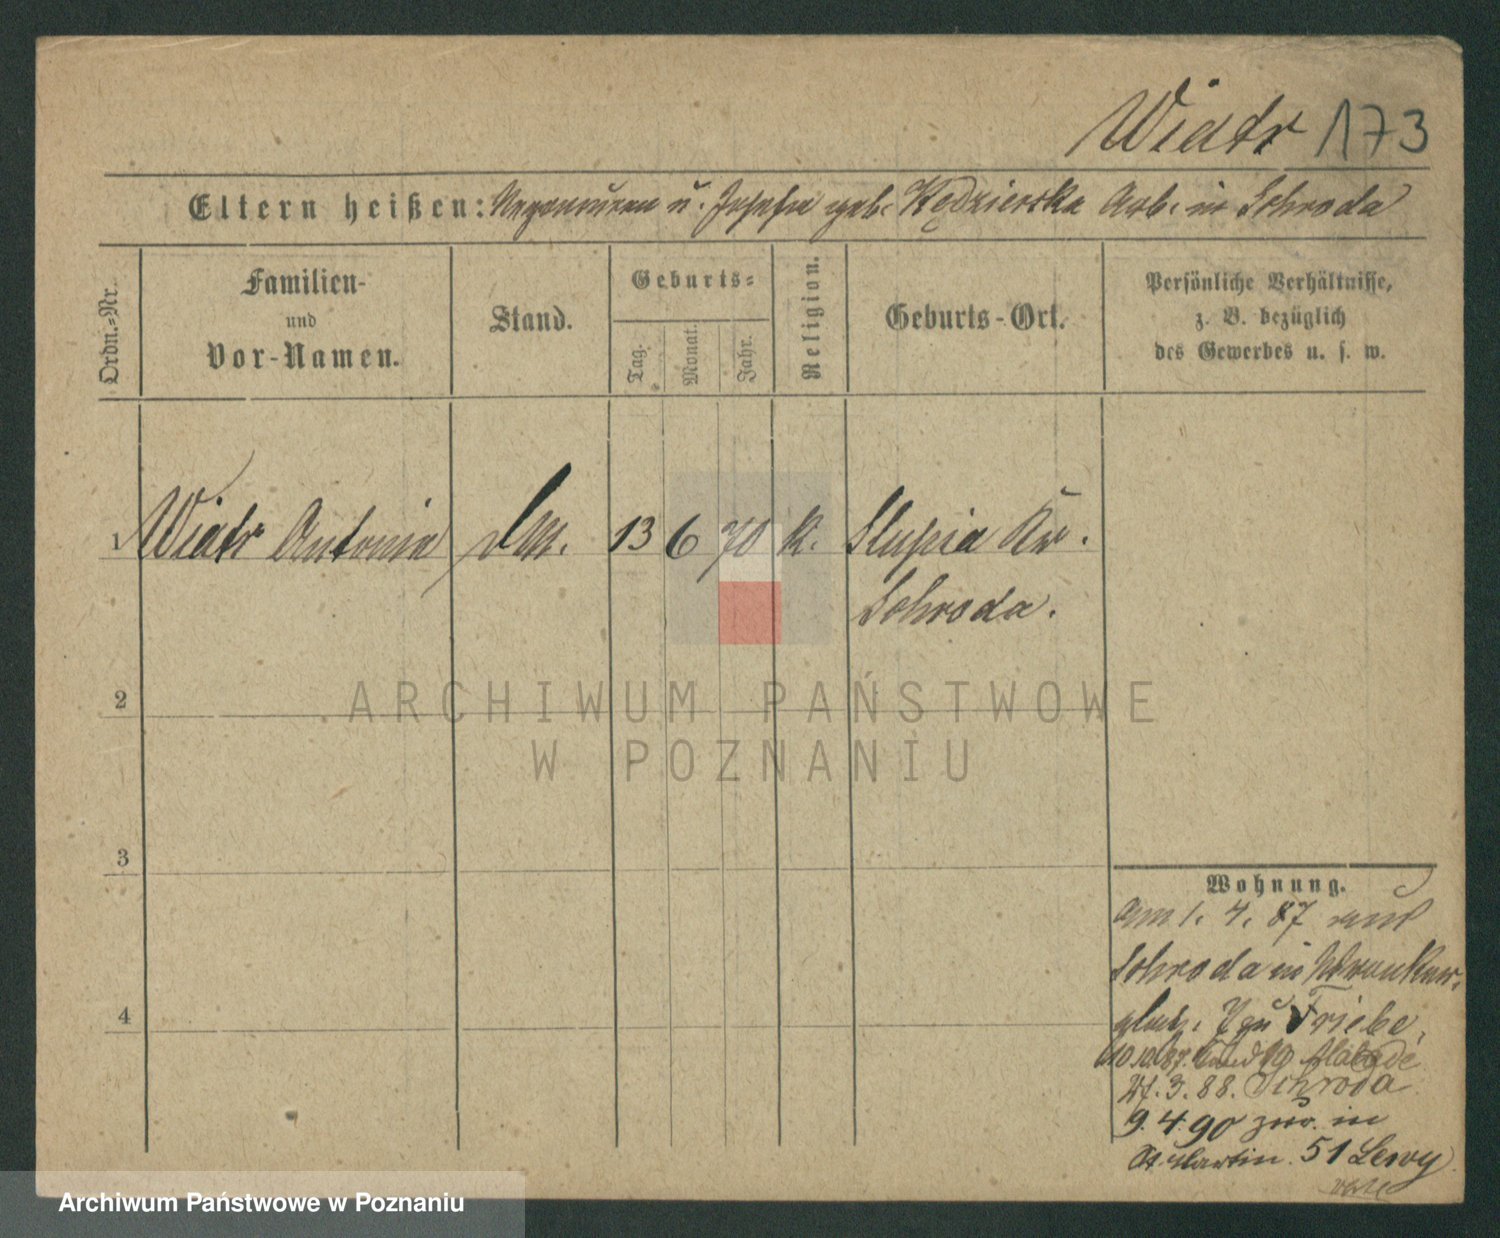 Wiatr 173
Eltern heißen: u. Josefa geb. Kędzierska Arb. in Schroda
Ordn.-Nr.
Familien-
und
Vor-Namen.
Stand.
Geburts-
Tag.
Monat.
Jahr.
Religion.
Geburts-Ort.
Persönliche Verhältnisse,
z. B. bezüglich
des Gewerbes u. s. w.
1 Wiatr Antonia dM. 13 6 70 K. Slupia Kr.
Schroda.
2
ARCHIWUM PAŃSTWOWE
W POZNANIU
3
Wohnung.
Am 1. 4. 87 aus
Schroda in Wronker
platz. 7 zu Triebe.
10.10.87.
27.3.88. Schroda
4
9.4.90 zur. in
St. Martin. 51 Lewy
Archiwum Państwowe w Poznaniu